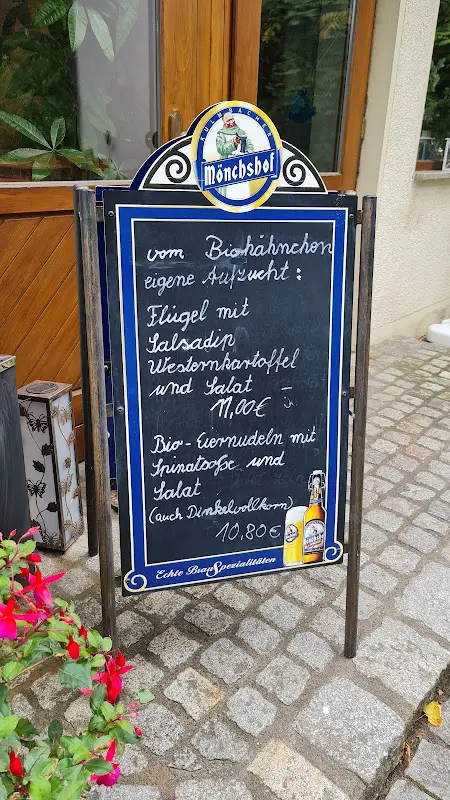 KULMBACHER
Mönchshof
vom Biohähnchen
eigene Aufzucht:
Flügel mit
Salsadip
Westernkartoffel
und Salat –
11,00€
Bio-Eiernudeln mit
Spinatsoße und
Salat
(auch Dinkelvollkorn)
10,80€
Echte BrauSpezialitäten